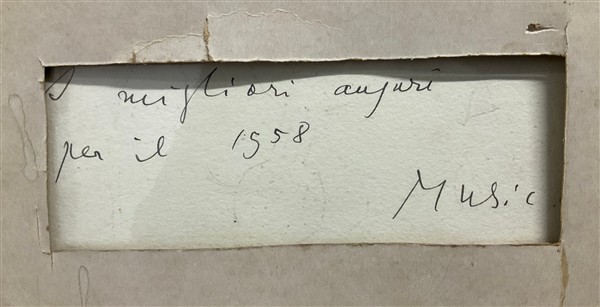 I migliori auguri
per il 1958
Music